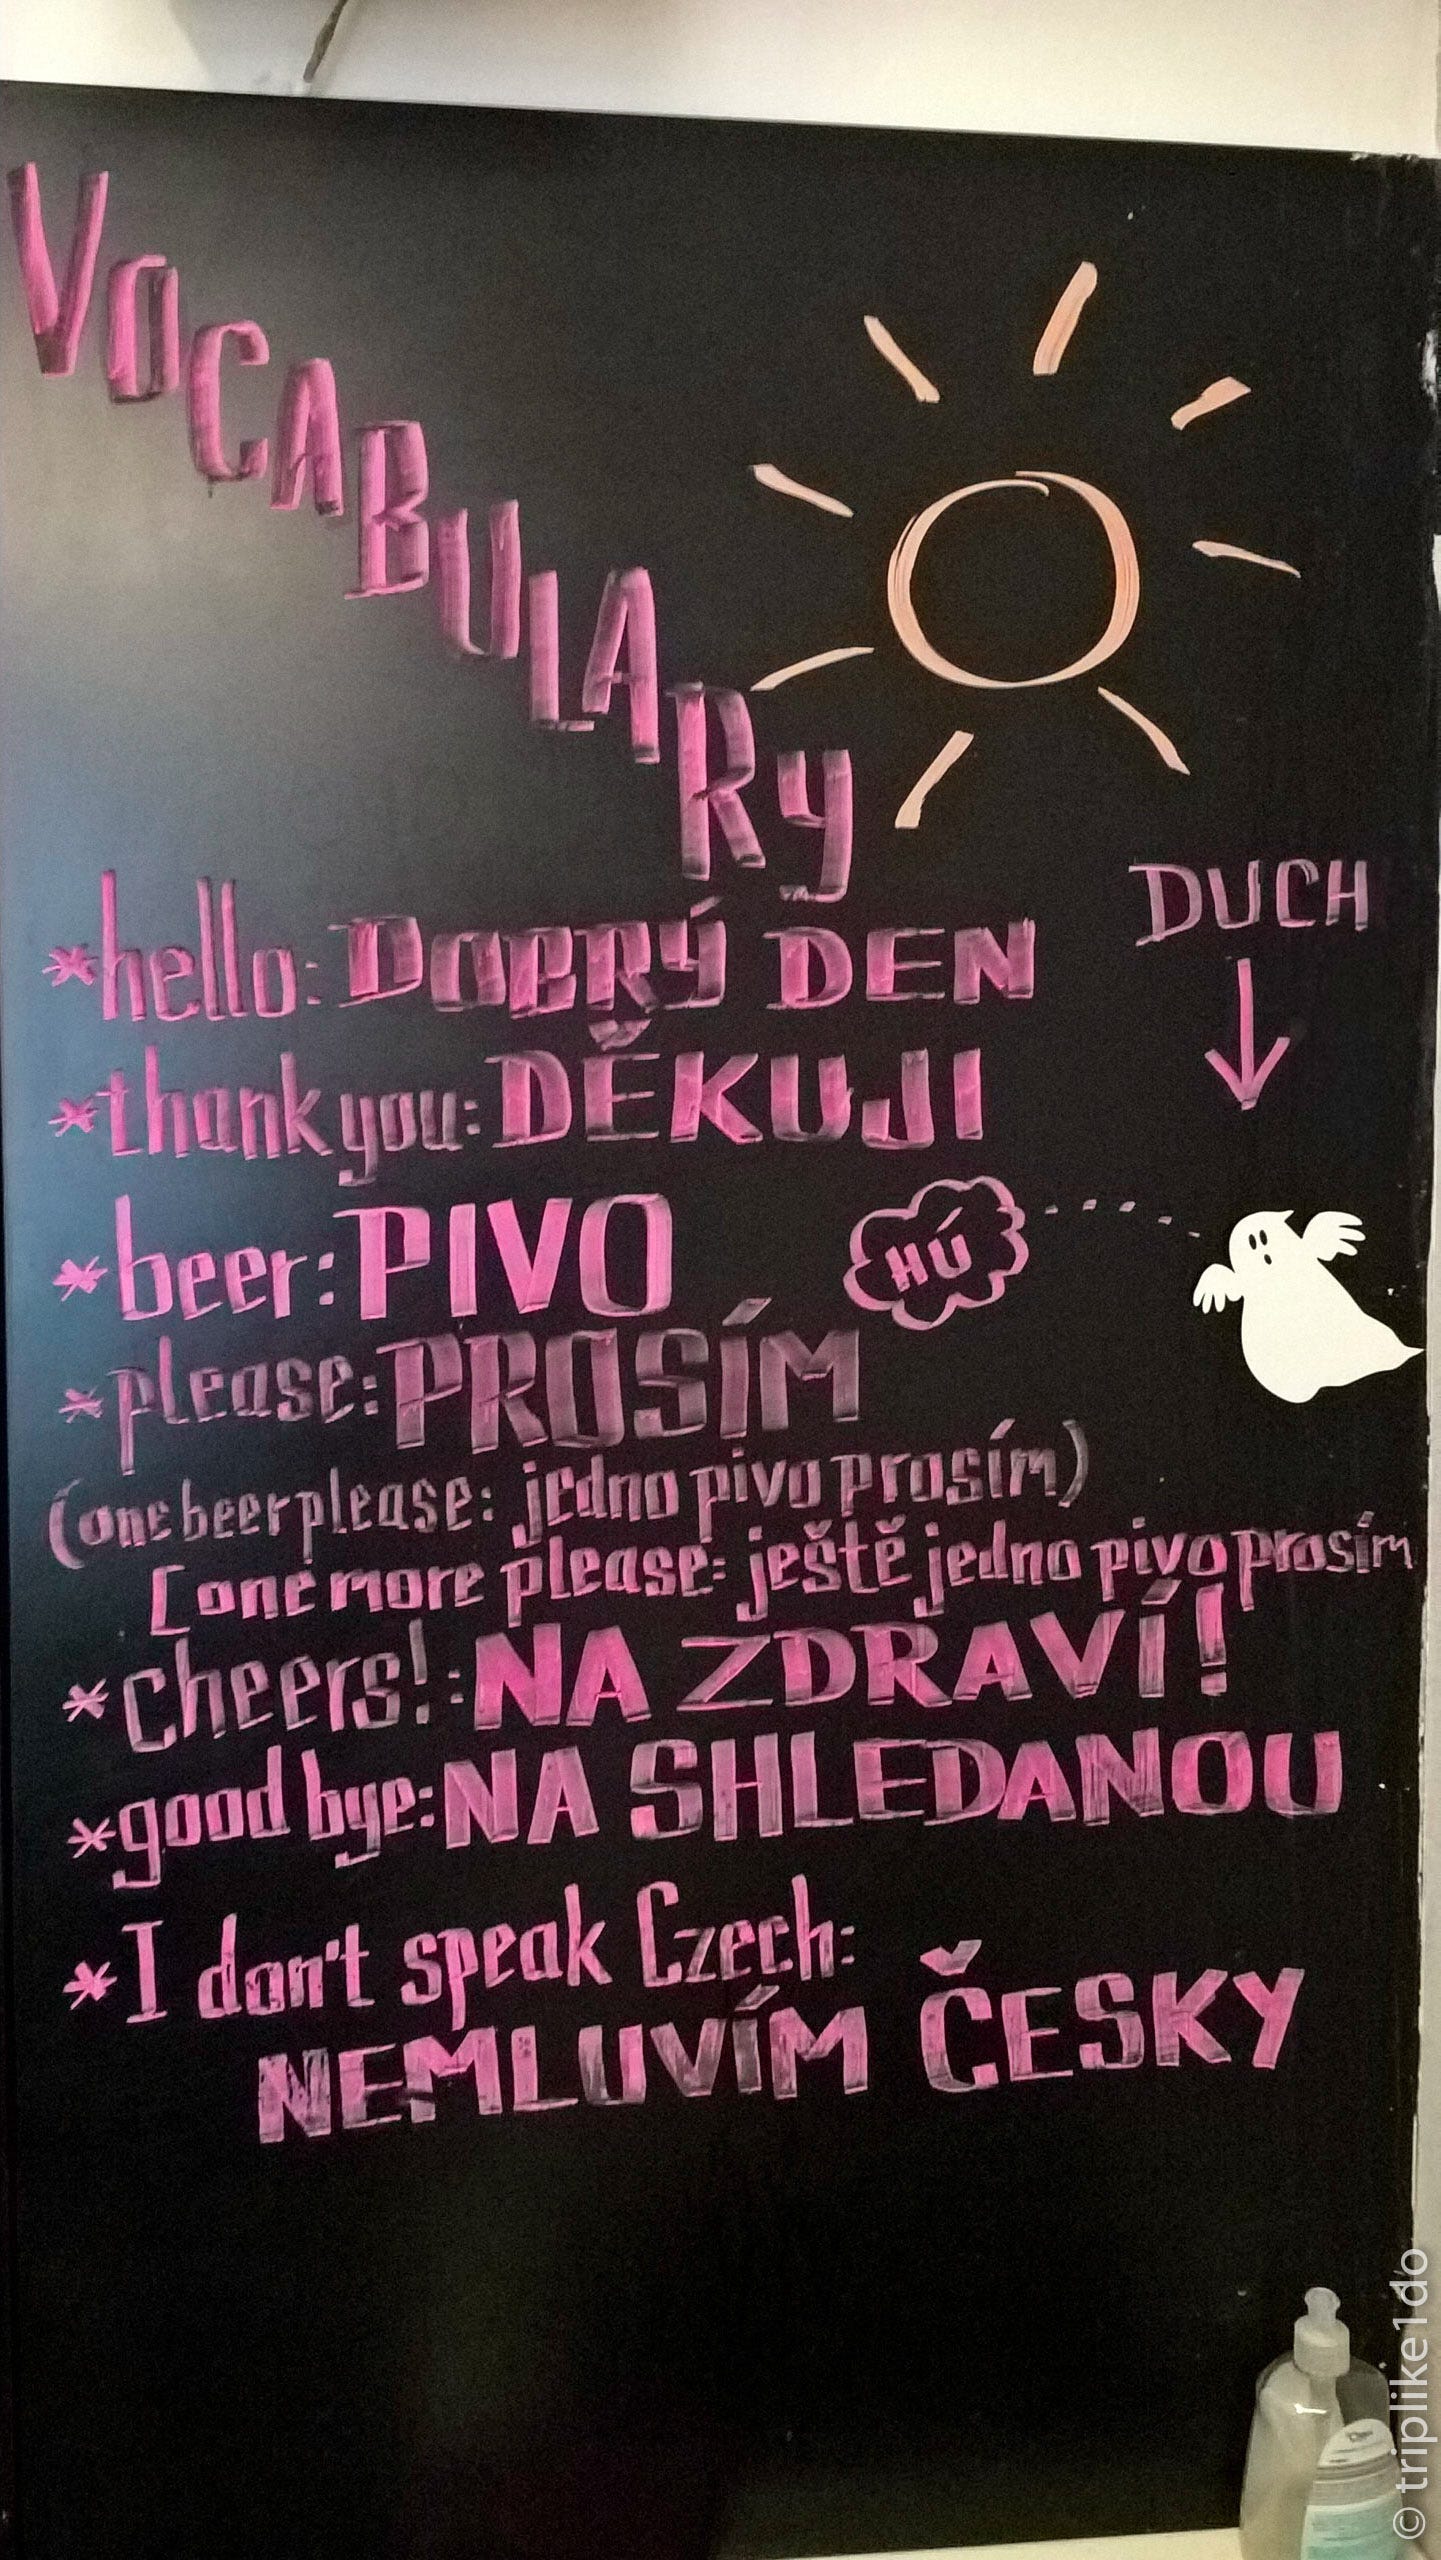 VOCABULARY
*hello: DOBRÝ DEN
DUCH
*thank you: DĚKUJI
*beer: PIVO
HÚ
*please: PROSÍM
(one beer please: jedno pivo prosím)
[one more please: ještě jedno pivo prosím
*cheers!: NA ZDRAVÍ!
*good bye: NA SHLEDANOU
*I don't speak Czech:
NEMLUVÍM ČESKY
© triplike1do